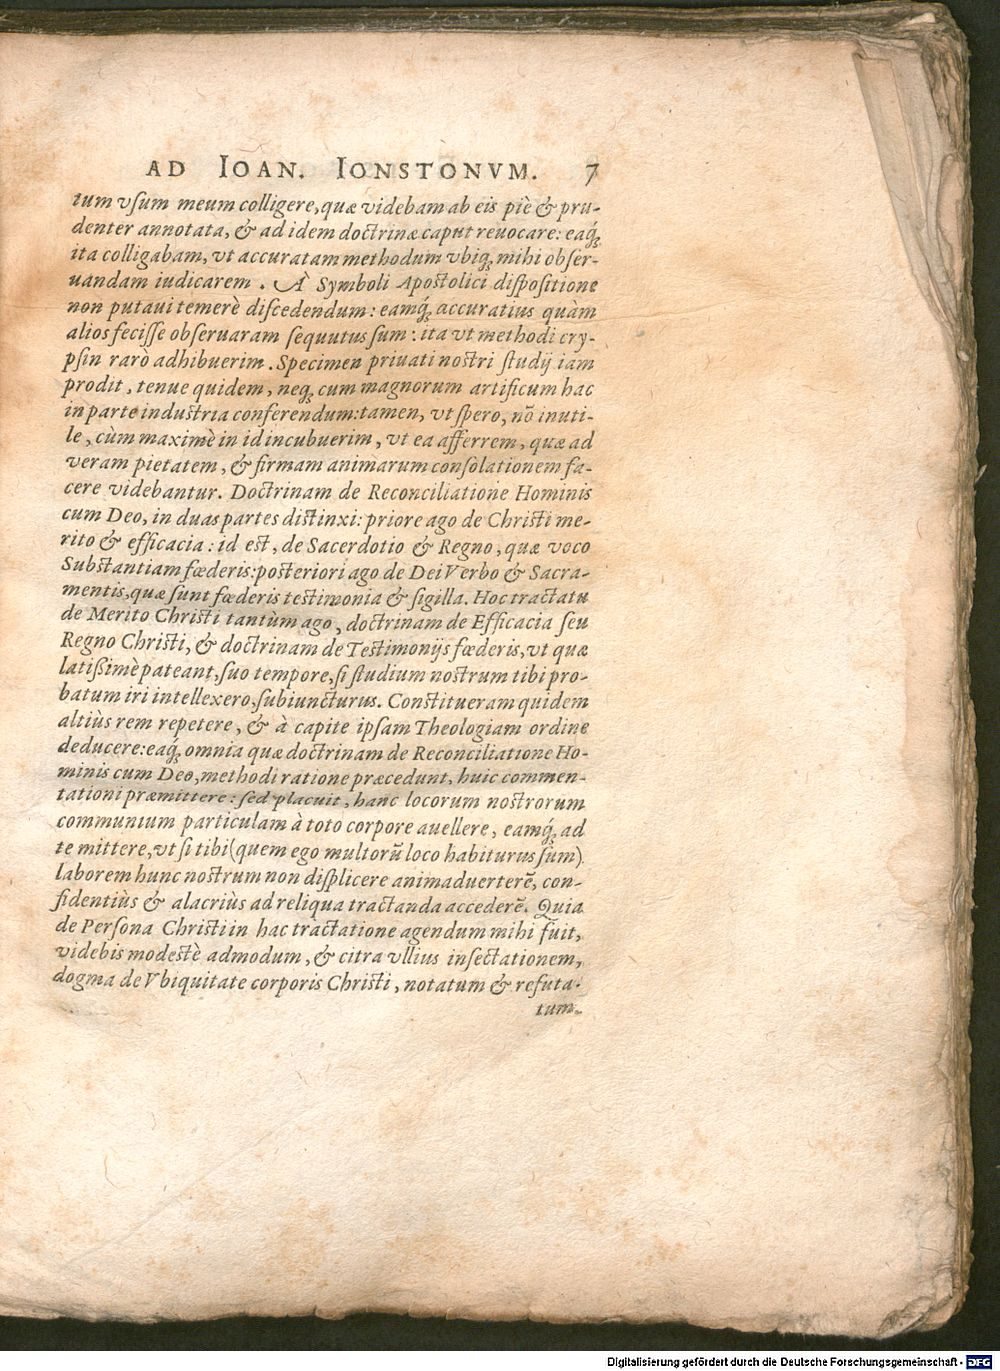 AD IOAN. IONSTONVM. 7
tum vsum meum colligere, quæ videbam ab eis piè & pru-
denter annotata, & ad idem doctrinæ caput reuocare: eaq́;
ita colligabam, vt accuratam methodum vbiq; mihi obser-
uandam iudicarem. À Symboli Apostolici dispositione
non putaui temerè discedendum: eamq́; accuratius quàm
alios fecisse obseruaram sequutus sum: ita vt methodi cry-
psin rarò adhibuerim. Specimen priuati nostri studij iam
prodit, tenue quidem, neq; cum magnorum artificum hac
in parte industria conferendum: tamen, vt spero, nō inuti-
le, cùm maximè in id incubuerim, vt ea afferrem, quæ ad
veram pietatem, & firmam animarum consolationem fa-
cere videbantur. Doctrinam de Reconciliatione Hominis
cum Deo, in duas partes distinxi: priore ago de Christi me-
rito & efficacia: id est, de Sacerdotio & Regno, quæ voco
Substantiam fœderis: posteriori ago de Dei Verbo & Sacra-
mentis, quæ sunt fœderis testimonia & sigilla. Hoc tractatu
de Merito Christi tantùm ago, doctrinam de Efficacia seu
Regno Christi, & doctrinam de Testimonijs fœderis, vt quæ
latißimè pateant, suo tempore, si studium nostrum tibi pro-
batum iri intellexero, subiuncturus. Constitueram quidem
altiùs rem repetere, & à capite ipsam Theologiam ordine
deducere: eaq́; omnia quæ doctrinam de Reconciliatione Ho-
minis cum Deo, methodi ratione præcedunt, huic commen-
tationi præmittere: sed placuit, hanc locorum nostrorum
communium particulam à toto corpore auellere, eamq́; ad
te mittere, vt si tibi (quem ego multorū loco habiturus sum)
laborem hunc nostrum non displicere animaduerterē, con-
fidentiùs & alacriùs ad reliqua tractanda accederē. Quia
de Persona Christi in hac tractatione agendum mihi fuit,
videbis modestè admodum, & citra vllius insectationem,
dogma de Vbiquitate corporis Christi, notatum & refuta-
tum.
Digitalisierung gefördert durch die Deutsche Forschungsgemeinschaft - DFG